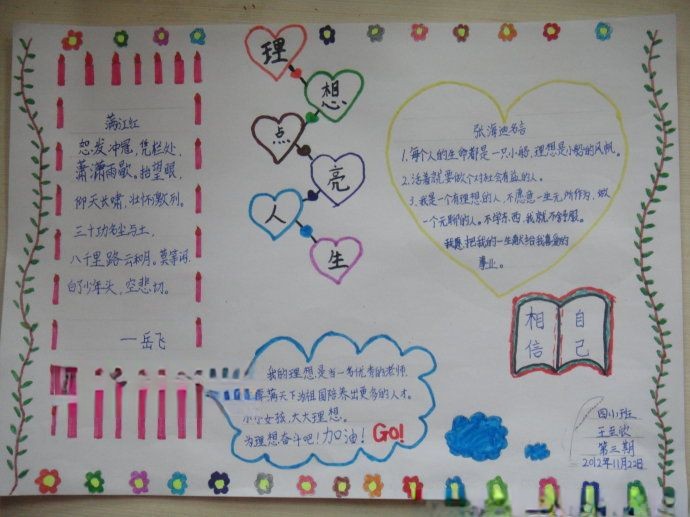 理
想
点
亮
人
生
满江红
怒发冲冠,凭栏处,
潇潇雨歇。抬望眼,
仰天长啸,壮怀激烈。
三十功名尘与土,
八千里路云和月。莫等闲,
白了少年头,空悲切。
一岳飞
张海迪名言
1.每个人的生命都是一只小船,理想是小船的风帆。
2.活着就要做个对社会有益的人。
3.我是一个有理想的人,不愿意一生无所作为,做
一个无聊的人。不学东西,我就不舒服。
我愿把我的一生献给我喜爱的
事业。
相信
自己
我的理想是当一名优秀的老师,
满天下为祖国培养出更多的人才。
小小女孩,大大理想。
为理想奋斗吧!加油!Go!
四小班
王
第三期
2012年11月22日